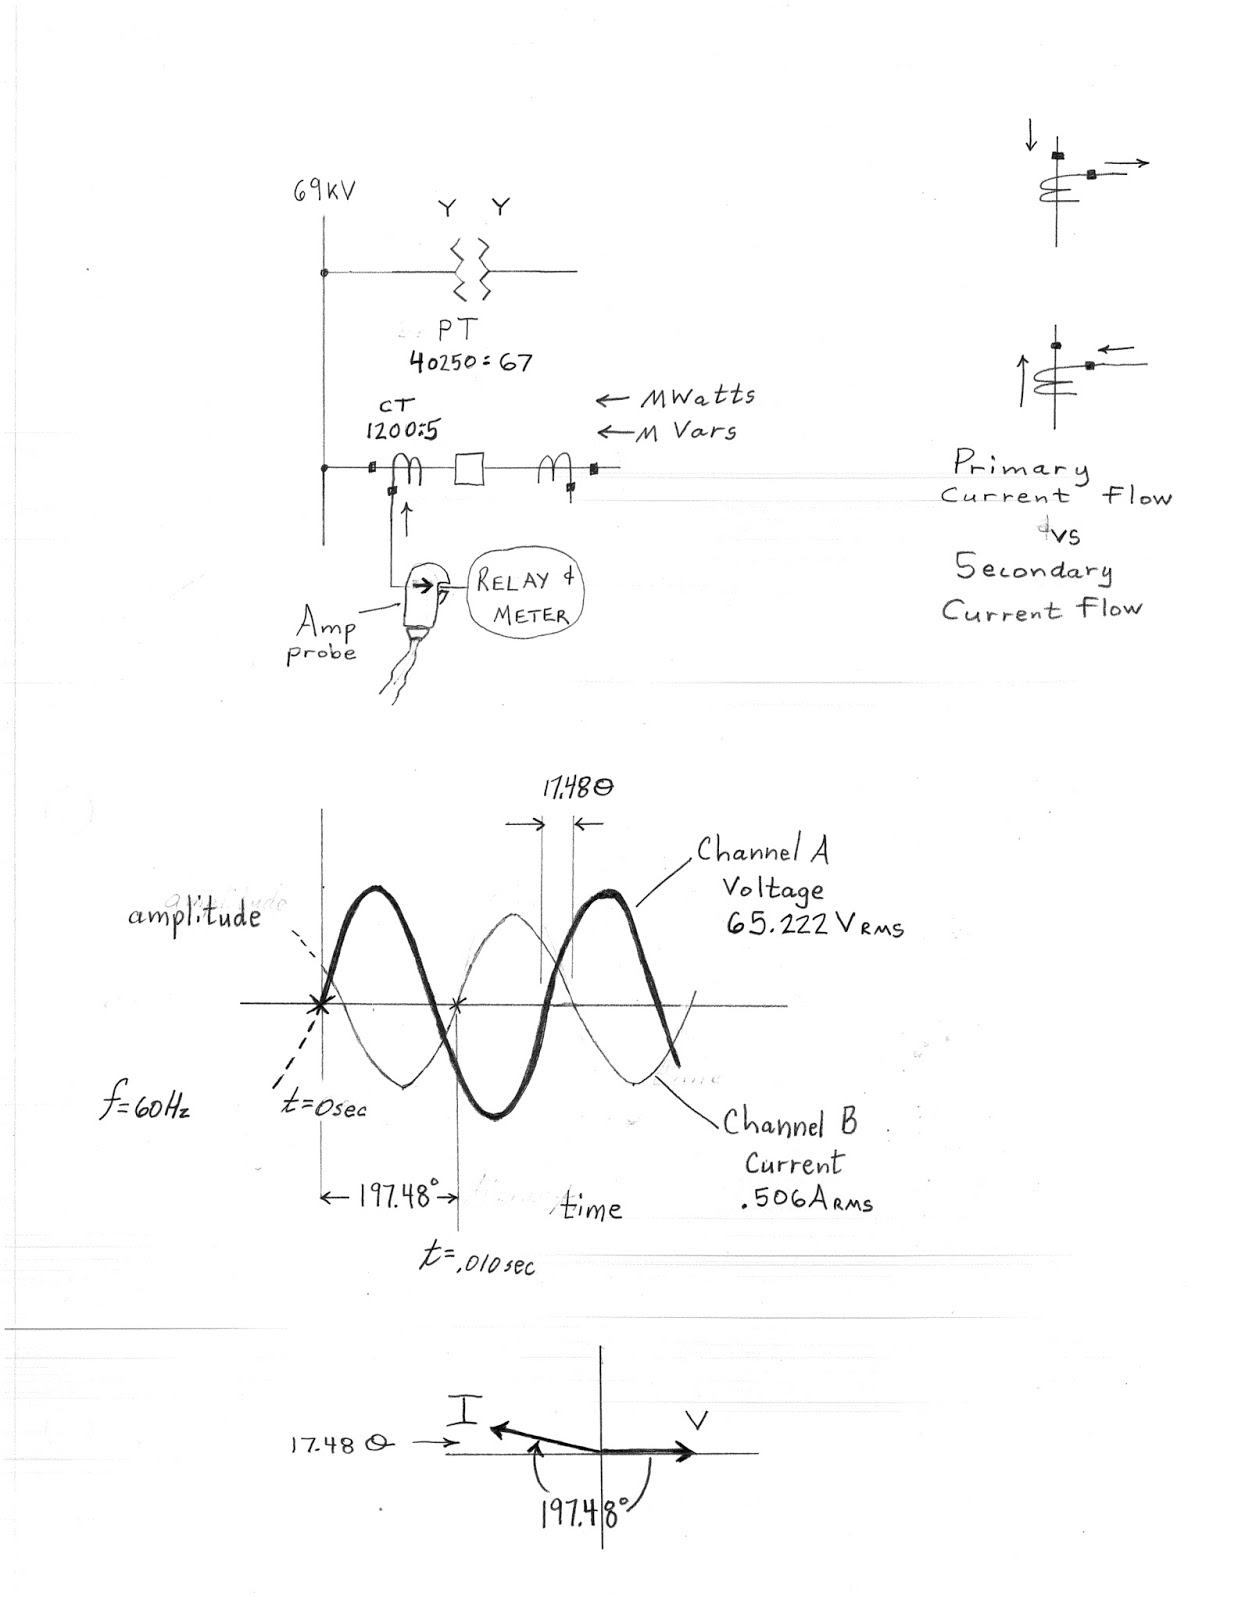 69KV
Y Y
PT
40250:67
CT
1200:5
← MWatts
← M Vars
Amp
probe
RELAY &
METER
Primary
Current Flow
vs
Secondary
Current Flow
17.48 θ
Channel A
Voltage
65.222 VRMS
amplitude
f=60Hz
t=0sec
197.48°
time
t=.010sec
Channel B
Current
.506ARMS
I
V
17.48 θ →
197.48°